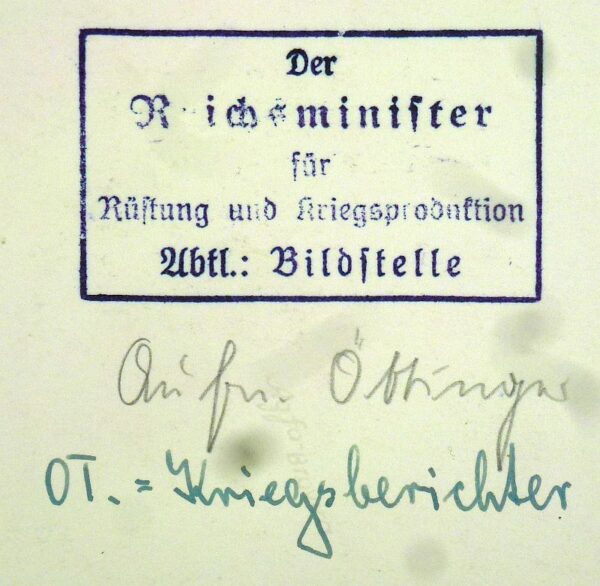 Der
Reichsminister
für
Rüstung und Kriegsproduktion
Abtl.: Bildstelle
Aufn. Öttinger
OT. = Kriegsberichter